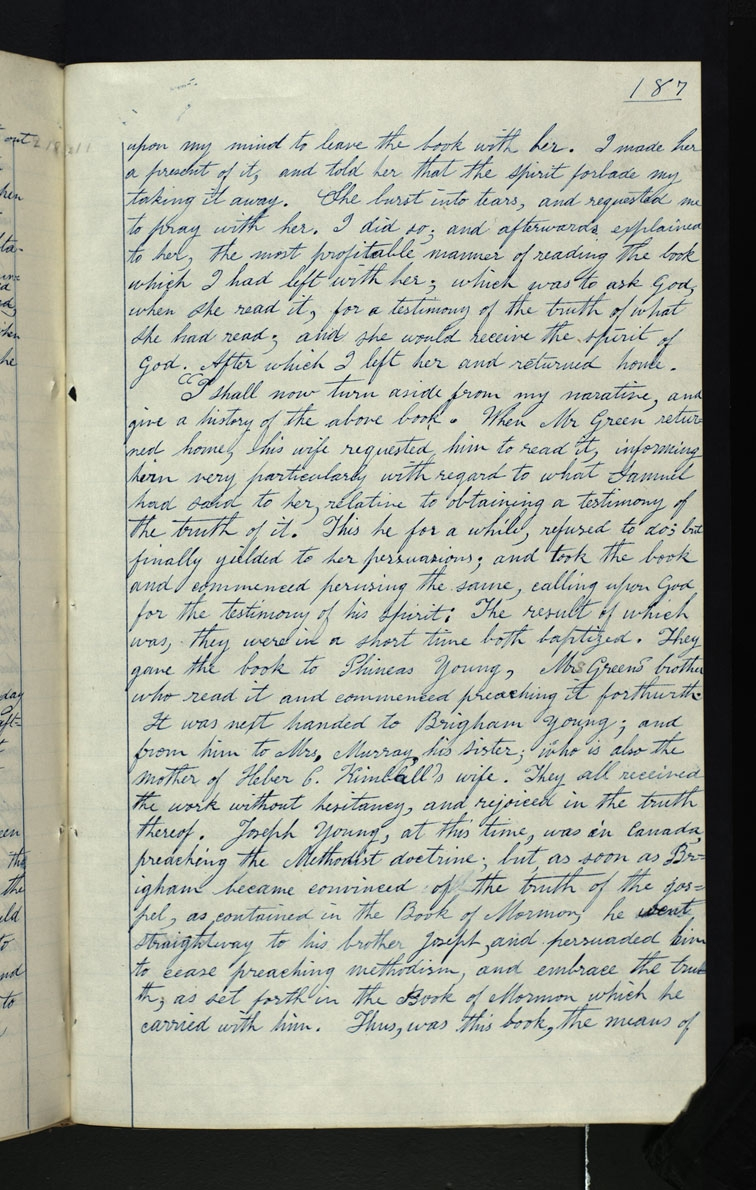 187
upon my mind to leave the book with her. I made her
a present of it, and told her that the spirit forbade my
taking it away. She burst into tears, and requested me
to pray with her. I did so; and afterwards explained
to her, the most profitable manner of reading the book
which I had left with her; which was to ask God,
when she read it, for a testimony of the truth of what
she had read; and she would receive the spirit of
God. After which I left her and returned home.
"I shall now turn aside from my narative, and
give a history of the above book. When Mr Green retur-
ned home, his wife requested him to read it, informing
him very particularly with regard to what Samuel
had said to her, relative to obtaining a testimony of
the truth of it. This he for a while, refused to do; but
finally yielded to her persuasions; and took the book
and commenced perusing the same, calling upon God
for the testimony of his spirit: The result of which
was, they were in a short time both baptized. They
gave the book to Phineas Young, Mrs Greens brother
who read it and commenced preaching it forthwith.
It was next handed to Brigham Young; and
from him to Mrs, Murray, his sister; who is also the
mother of Heber C. Kimball's wife. They all received
the work without hesitancy, and rejoiced in the truth
thereof. Joseph Young, at this time, was in Canada,
preaching the Methodist doctrine; but, as soon as Br=
igham became convinced of the truth of the gos=
pel, as contained in the Book of Mormon, he went
straightway to his brother Joseph, and persuaded him
to cease preaching methodism, and embrace the tru
th; as set forth in the Book of Mormon which he
carried with him. Thus, was this book, the means of